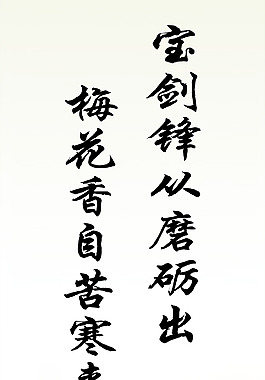 宝剑锋从磨砺出
梅花香自苦寒